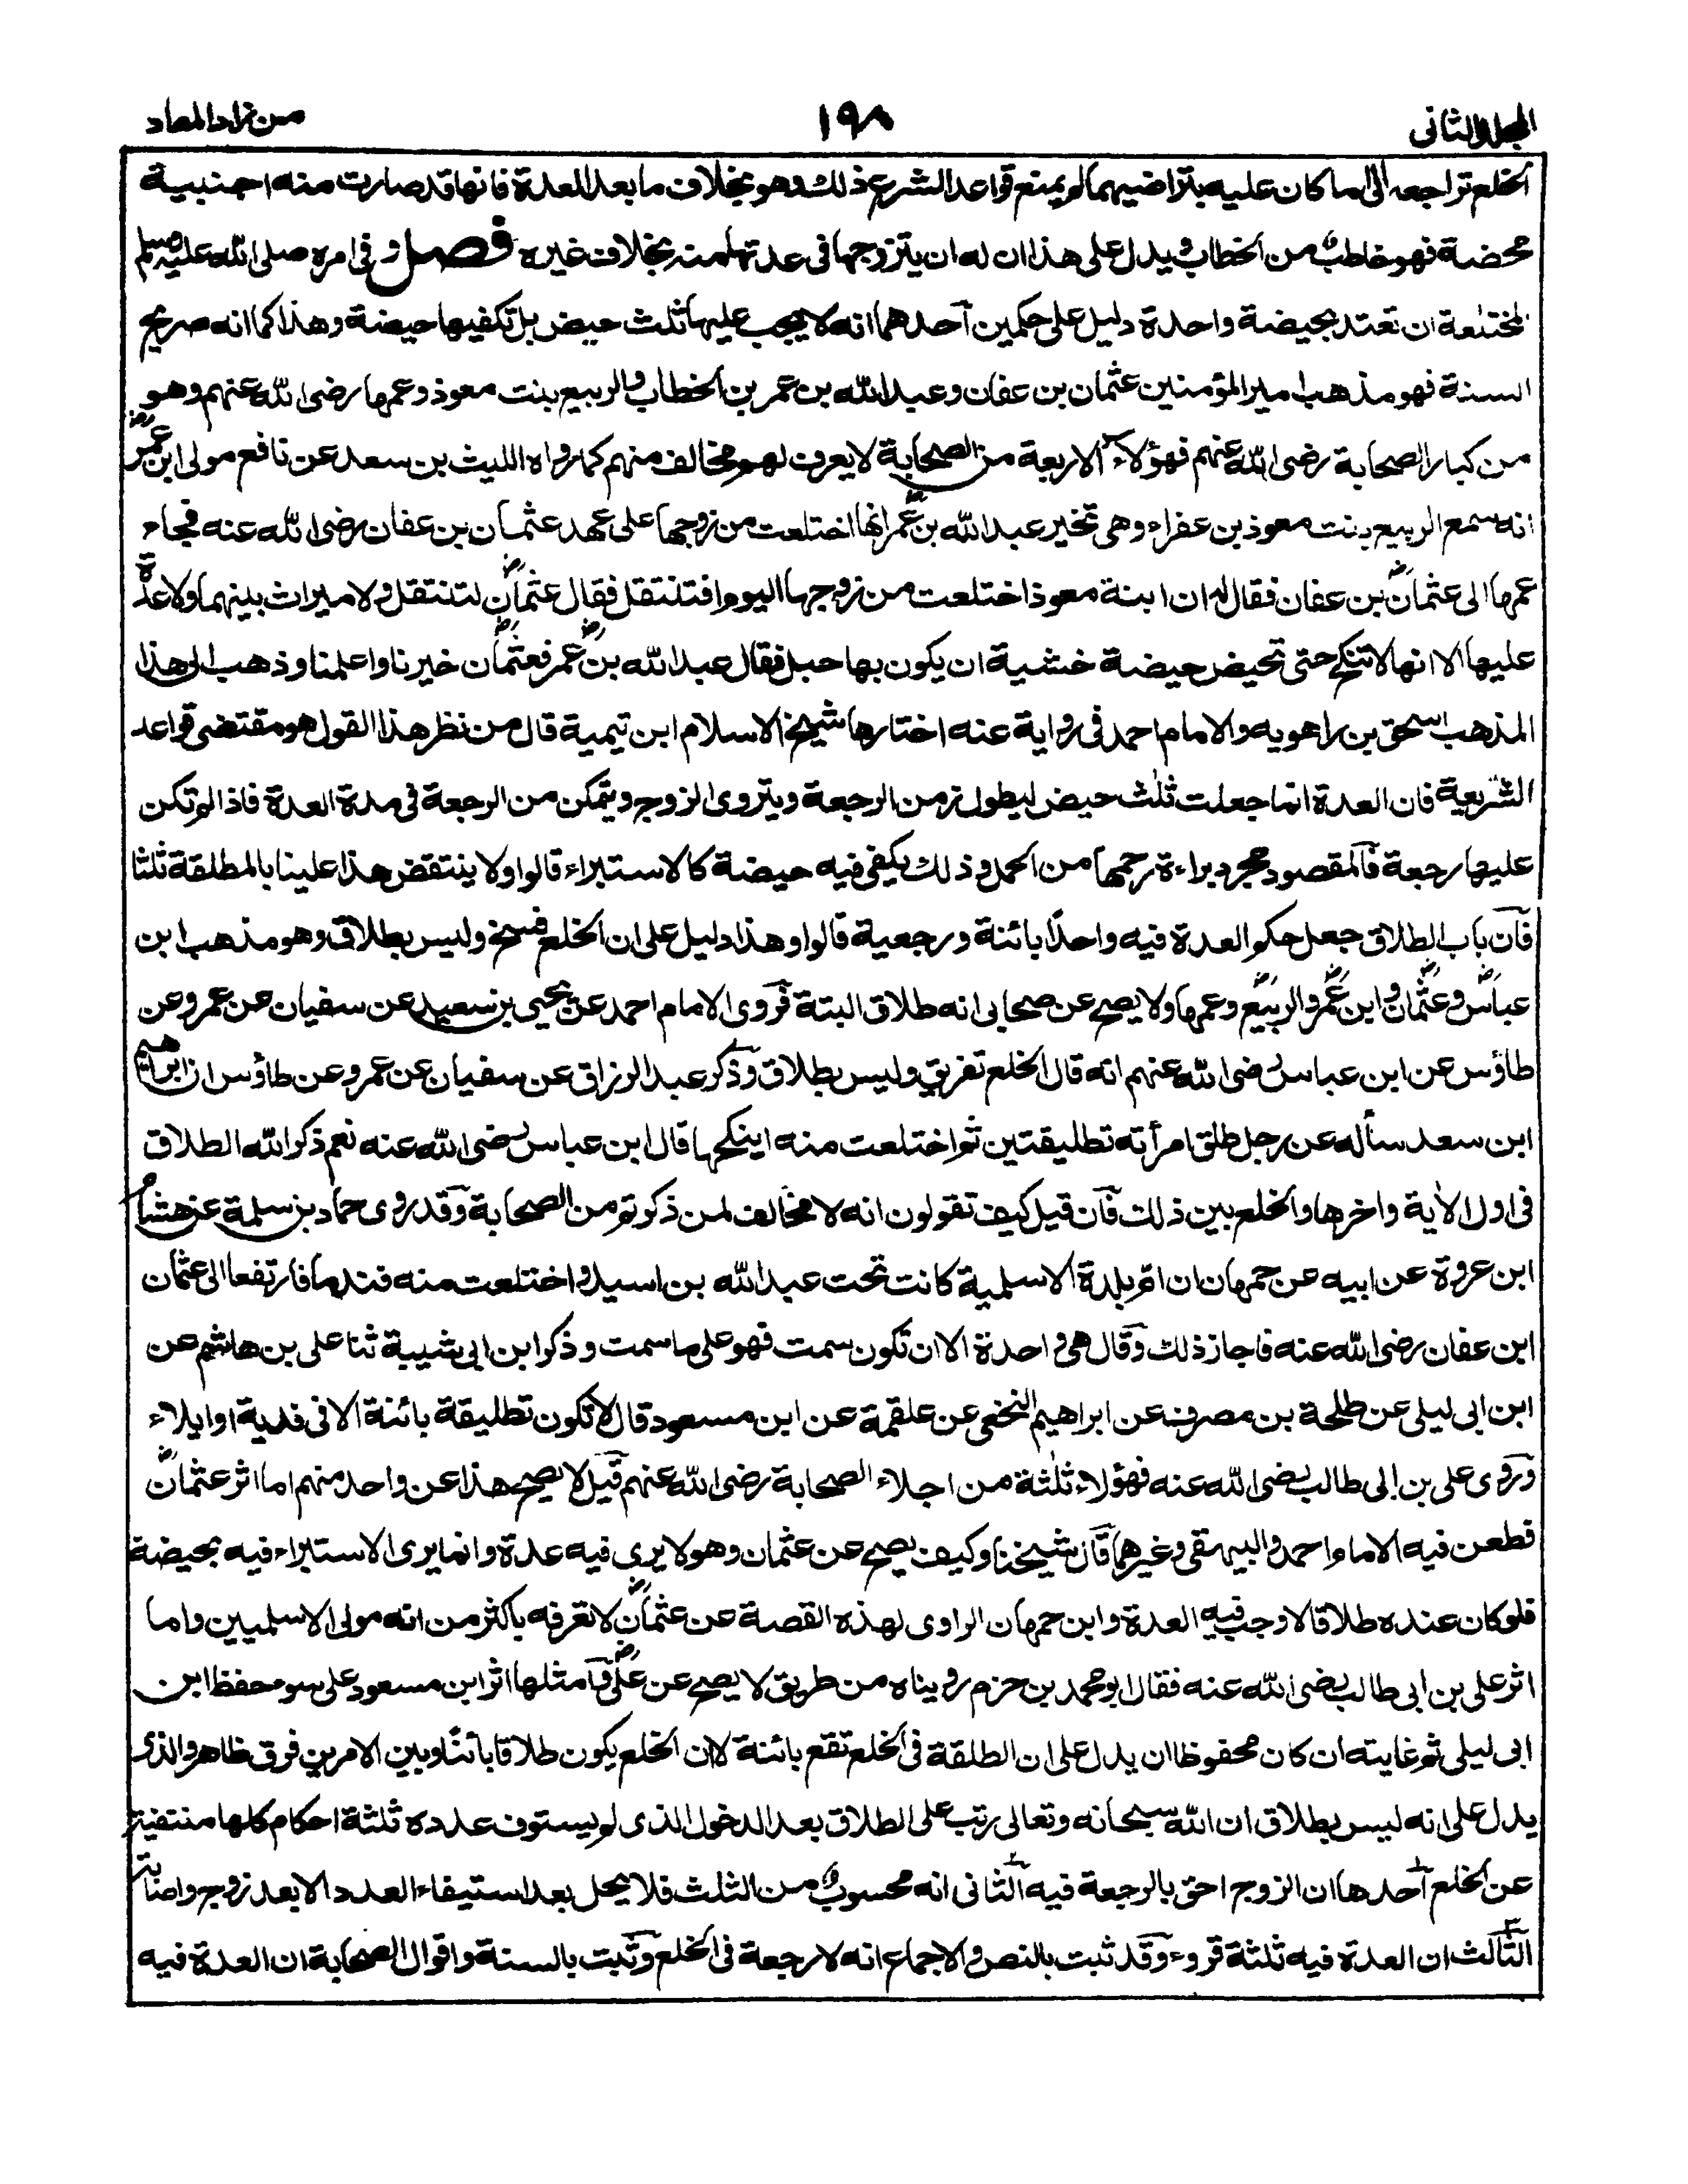 المجلد الثانى
١٩٨
من زاد المعاد
الخلع تراجعا الى ما كان عليه بتراضيهما لم يمنع قواعد الشرع ذلك وهو بخلاف ما بعد العدة فانها قد صارت منه اجنبية
محضة فهو خاطب من الخطاب ويدل على هذا ان له ان يتزوجها فى عدتها منه بخلاف غيره فصل و فى امره صلى الله عليه وسلم
المختلعة ان تعتد بحيضة واحدة دليل على حكمين احدهما انه لا يجب عليها ثلث حيض بل تكفيها حيضة وهذا كما انه صريح
السنة فهو مذهب امير المؤمنين عثمان بن عفان وعبد الله بن عمر بن الخطاب والربيع بنت معوذ وعمها رضى الله عنهم وهو
من كبار الصحابة رضى الله عنهم فهؤلاء الاربعة من الصحابة لا يعرف لهم مخالف منهم كما رواه الليث بن سعد عن نافع مولى ابن عمرؓ
انه سمع الربيع بنت معوذ بن عفراء وهى تخبر عبد الله بن عمرؓ انها اختلعت من زوجها على عهد عثمان بن عفان رضى الله عنه فجاء
عمها الى عثمانؓ بن عفان فقال له ان ابنة معوذ اختلعت من زوجها اليوم افتنتقل فقال عثمانؓ لتنتقل ولا ميراث بينهما ولا عدة
عليها الا انها لا تنكح حتى تحيض حيضة خشية ان يكون بها حبل فقال عبد الله بن عمرؓ فعثمانؓ خيرنا واعلمنا وذهب الى هذا
المذهب اسحق بن راهويه والامام احمد فى رواية عنه اختارها شيخ الاسلام ابن تيمية قال من نظر هذا القول هو مقتضى قواعد
الشريعة فان العدة انما جعلت ثلث حيض ليطول زمن الرجعة ويتروى الزوج ويتمكن من الرجعة فى مدة العدة فاذا لم تكن
عليها رجعة فالمقصود مجرد براءة رحمها من الحمل وذلك يكفى فيه حيضة كالاستبراء قالوا ولا ينتقض هذا علينا بالمطلقة ثلثا
فان باب الطلاق جعل حكم العدة فيه واحدًا بائنة ورجعية قالوا وهذا دليل على ان الخلع فسخ وليس بطلاق وهو مذهب ابن
عباسؓ وعثمانؓ وابن عمرؓ والربيعؓ وعمها ولا يصح عن صحابى انه طلاق البتة فروى الامام احمد عن يحيى بن سعيد عن سفيان عن عمرو عن
طاؤس عن ابن عباس رضى الله عنهم انه قال الخلع تفريق وليس بطلاق وذكر عبد الرزاق عن سفيان عن عمرو عن طاؤس ان ابراهيم
ابن سعد سأله عن رجل طلق امرأته تطليقتين ثم اختلعت منه اينكحها قال ابن عباس رضى الله عنه نعم ذكر الله الطلاق
فى اول الاٰية واخرها والخلع بين ذلك فان قيل كيف تقولون انه لا مخالف لمن ذكرتم من الصحابة وقد روى حماد بن سلمة عن هشام
ابن عروة عن ابيه عن جمهان ان ام بلدة الاسلمية كانت تحت عبد الله بن اسيد واختلعت منه فندما فارتفعا الى عثمان
ابن عفان رضى الله عنه فاجاز ذلك وقال هى واحدة الا ان تكون سمت فهو على ما سمت وذكر ابن ابى شيبة ثنا على بن هاشم عن
ابن ابى ليلى عن طلحة بن مصرف عن ابراهيم النخعى عن علقمة عن ابن مسعود قال لا تكون تطليقة بائنة الا فى فدية او ايلاء
وروى على بن ابى طالب رضى الله عنه فهؤلاء ثلثة من اجلاء الصحابة رضى الله عنهم قيل لا يصح هذا عن واحد منهم اما اثر عثمانؓ
فطعن فيه الامام احمد والبيهقى وغيرهما قال شيخنا وكيف يصح عن عثمان وهو لا يرى فيه عدة وانما يرى الاستبراء فيه بحيضة
فلو كان عنده طلاقا لاوجب فيه العدة وابن جمهان الراوى لهذه القصة عن عثمانؓ لا نعرفه باكثر من انه مولى الاسلميين واما
اثر على بن ابى طالب رضى الله عنه فقال ابو محمد بن حزم رويناه من طريق لا يصح عن علىؓ وامثلها اثر ابن مسعود على سوء حفظ ابن
ابى ليلى ثم غايته ان كان محفوظا ان يدل على ان الطلقة فى الخلع تقع بائنة لا ان الخلع يكون طلاقا بائنًا وبين الامرين فرق ظاهر والذى
يدل على انه ليس بطلاق ان الله سبحانه وتعالى رتب على الطلاق بعد الدخول الذى لم يستوف عدده ثلثة احكام كلها منتفية
عن الخلع احدها ان الزوج احق بالرجعة فيه الثانى انه محسوب من الثلث فلا يحل بعد استيفاء العدد الا بعد زوج واصابة
الثالث ان العدة فيه ثلثة قروء وقد ثبت بالنص والاجماع انه لا رجعة فى الخلع وثبت بالسنة واقوال الصحابة ان العدة فيه